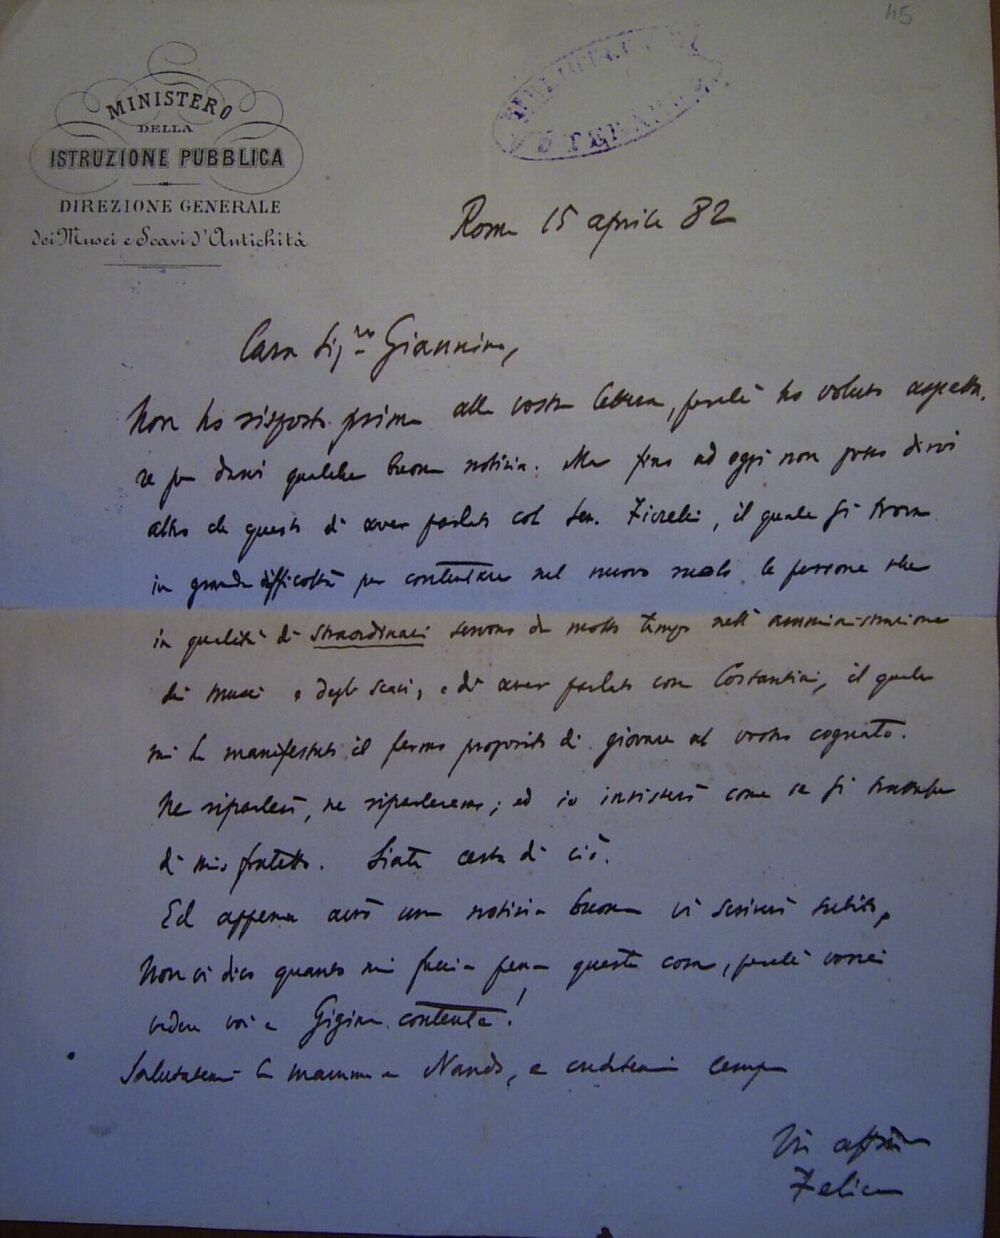 45
MINISTERO
DELLA
ISTRUZIONE PUBBLICA
DIREZIONE GENERALE
dei Musei e Scavi d'Antichità
BIBLIOTECA
DI TERAMO
Roma 15 aprile 82
Cara Sig.ra Giannina,
Non ho risposto prima alla vostra lettera, perchè ho voluto aspetta-
re per darvi qualche buona notizia. Ma fino ad oggi non posso dirvi
altro che questo di aver parlato col Sen. Fiorelli, il quale si trova
in grande difficoltà per contentare nel nuovo ruolo le persone che
in qualità di straordinari servono da molto tempo nell'amministrazione
dei musei e degli scavi, e di aver parlato con Costantini, il quale
mi ha manifestato il fermo proposito di giovare al vostro cognato.
Ne riparlerà, ne riparleremo; ed io insisterò come se si trattasse
di mio fratello. Siate certa di ciò.
Ed appena avrò una notizia buona vi scriverò subito,
Non vi dico quanto mi faccia pena questa cosa, perchè vorrei
vedere voi e Gigina contente!
Salutatemi la mamma e Nando, e credetemi sempre
Vo affmo
Felice